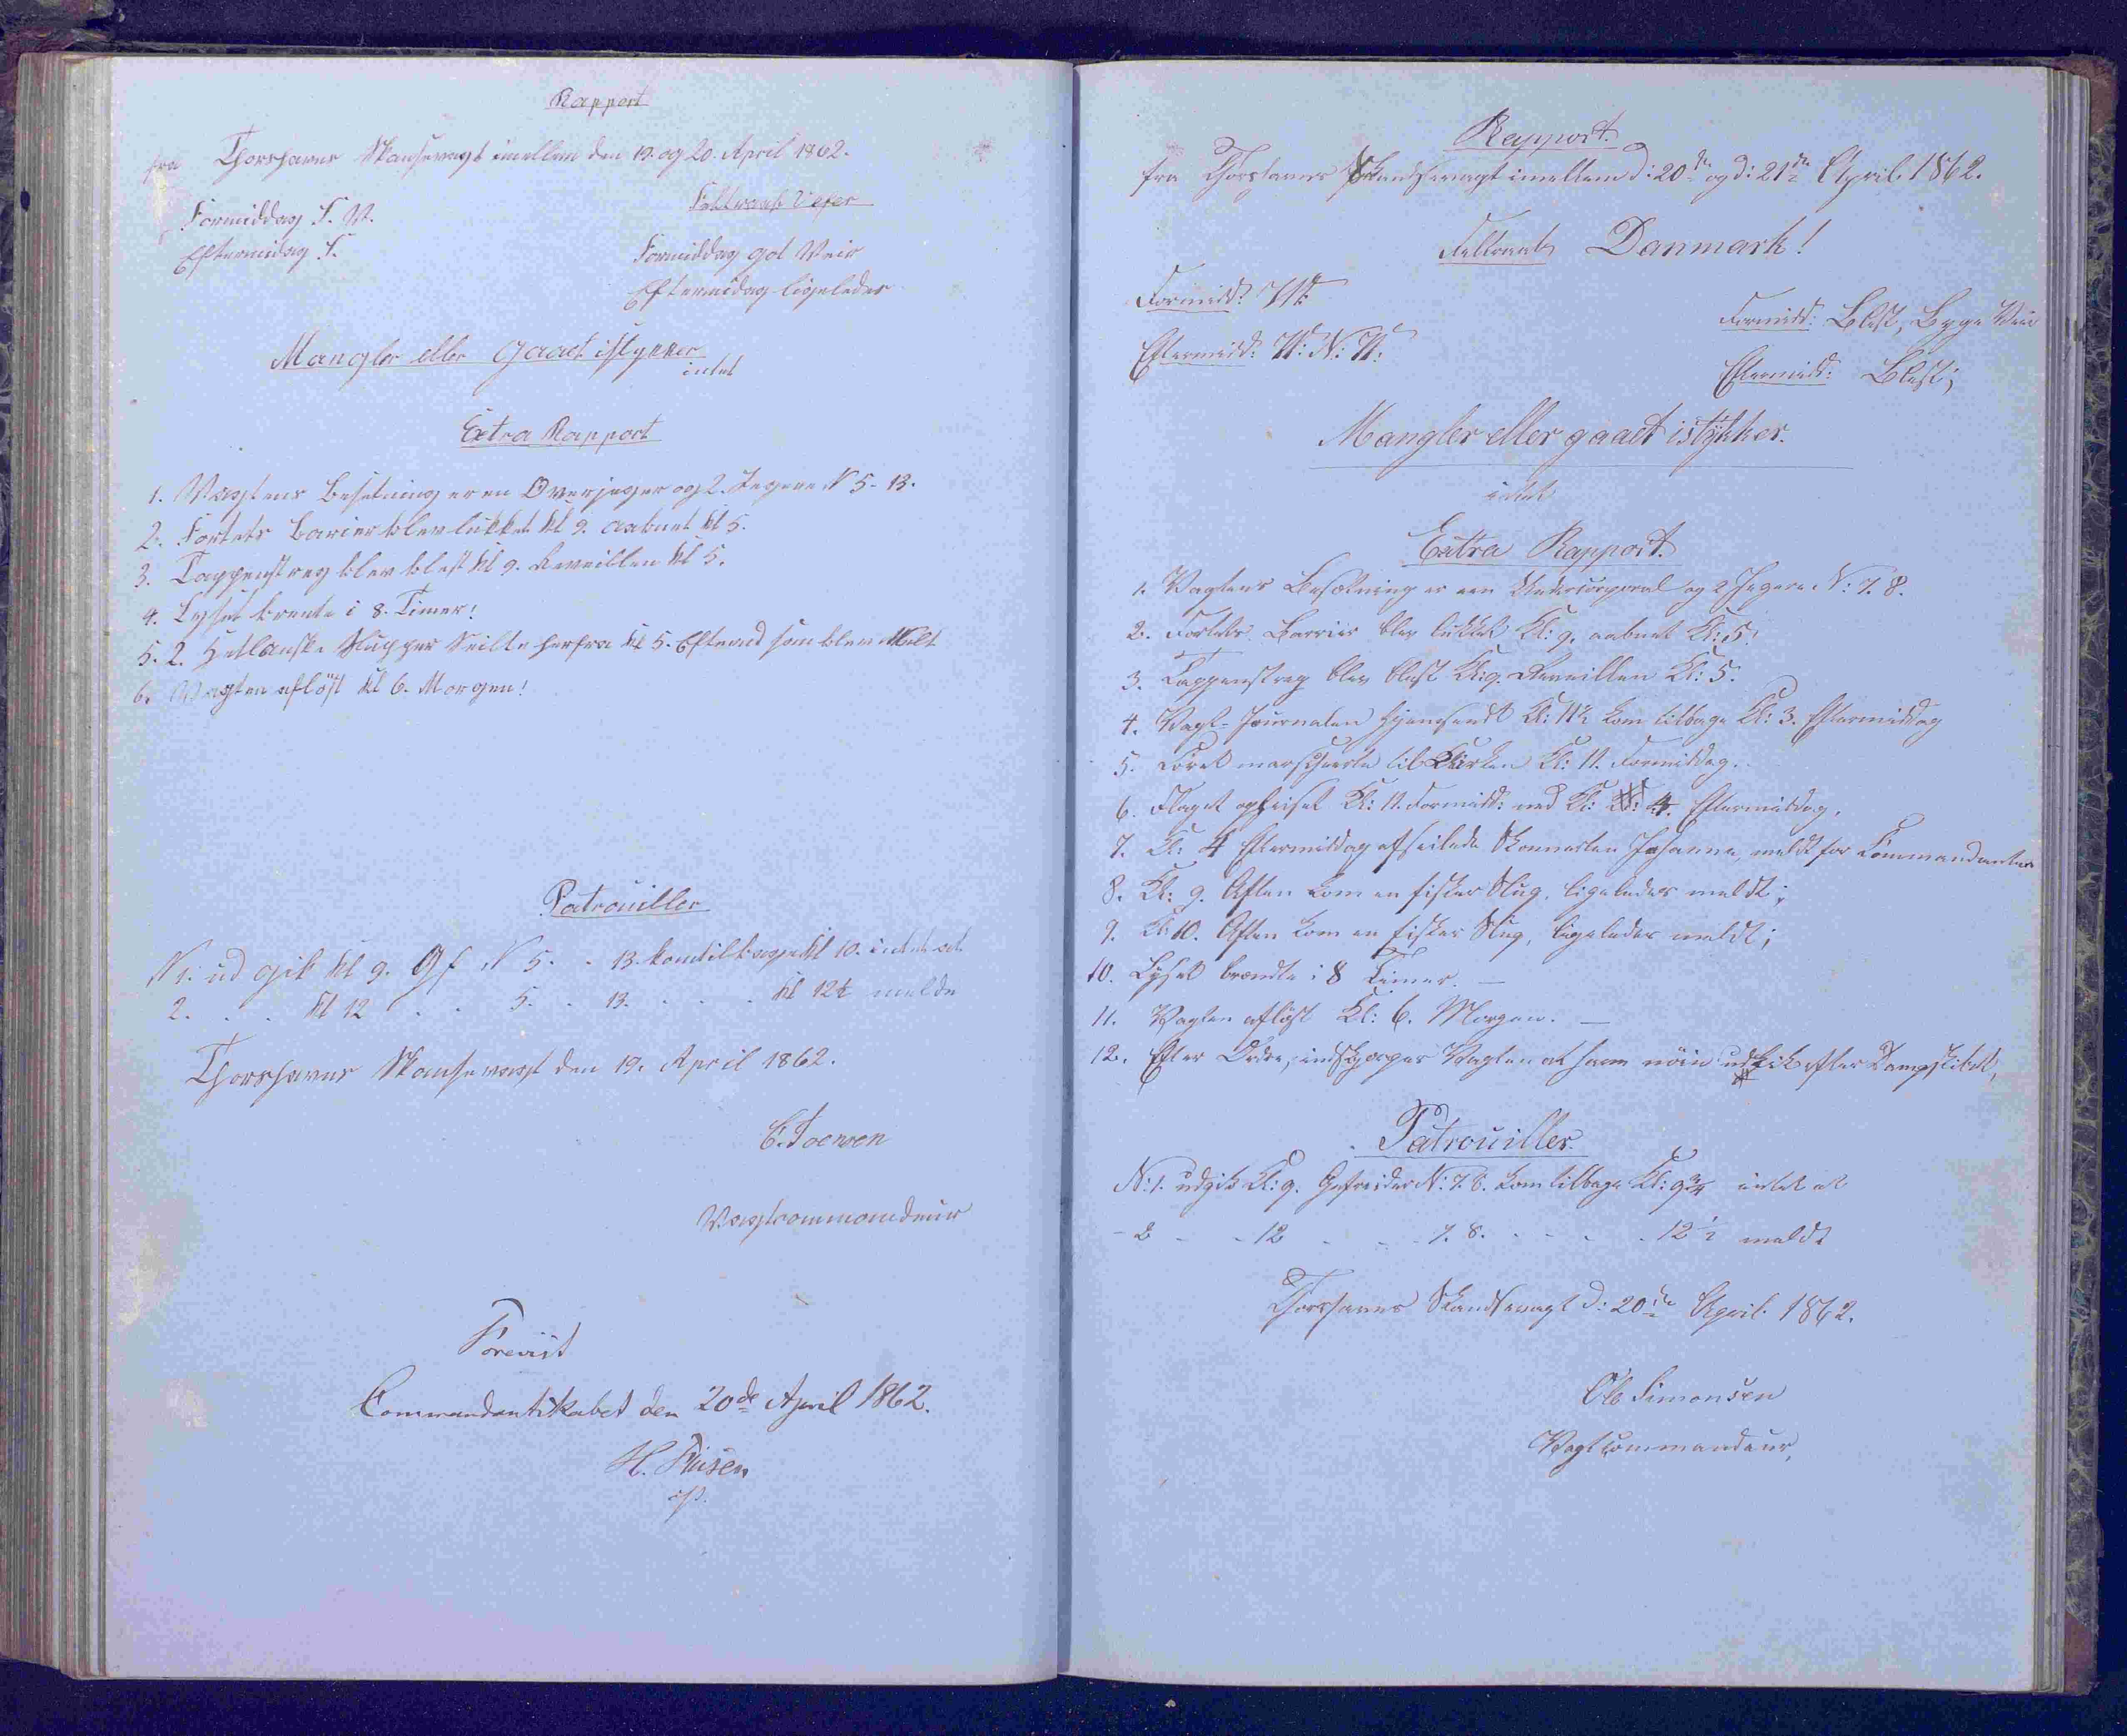 Rapport
fra Thorshavns Skansevagt imellem den 19. og 20. April 1862.
Feltraab
Formiddag S. V.
Eftermidag S.
Formiddag got Veir
Eftermidag ligeledes
Mangler eller gaaet istykker
intet
Extra Rapport
1. Vagtens Besetning er en Overjeger og 2. Jegere N 5 - 13.
2. Fortets Barier blev lukket kl 9. aabnet kl 5.
3. Tappenstreg blev blest kl 9. Reveillen kl 5.
4. Lyset brente i 8. Timer!
5. 2. Hetlanske Slupper Seilte herfra kl 5. Eftemd som blev Melt
6. Vagten aflöst kl 6. Morgen!
Patrouiller
N 1. ud gik kl 9. Gf N 5. . 13. kom tilbage kl 10. intet at
2. . . kl 12 . . 5. . 13. . . . kl 12½ melde
Thorshavns Skansevagt den 19. April 1862.
Vagtcommandeur
Forevist
Commandantskabet den 20de April 1862.
Rapport.
fra Thorshavns Skandsevagt imellem d: 20de og d: 21de April 1862.
Feltraab Danmark!
Formidd: V:
Eftermidd: V: N: V:
Formidd: Blest, Byge Veir
Eftermidd: Blest;
Mangler eller gaaet istykker.
intet
Extra Rapport.
1. Vagtens Besætning er een Undercorporal og 2 Jegere N: 7. 8.
2. Fortets Barrier blev lukket Kl: 9. aabnet Kl: 5.
3. Tappenstreg blev blest Kl: 9. Reveillen Kl: 5.
4. Vagt-Journalen hjemsendt Kl: 11½ kom tilbage Kl: 3. Eftermiddag
5. Coret marscheerte til Kirken Kl: 11. Formiddag.
6. Flaget opheiset Kl: 11. Formidd: ned Kl: 4. Eftermiddag.
7. Kl: 4 Eftermiddag afseilede Skonnerten Johanne, meldt for Commandanten
8. Kl: 9. Aften kom en fisker Slup, ligeledes meldt;
9. Kl: 10. Aften kom en fisker Slup, ligeledes meldt;
10. Lyset brændte i 8 Timer. —
11. Vagten aflöst Kl: 6. Morgen. —
12. Efter Ordre, indskjærpes Vagten at have nöie udkik efter Dampskibet,
Patrouiller.
N: 1. udgik Kl: 9. Gefreider N: 7. 8. kom tilbage Kl: 9¾ intet at
- 2 - - 12 - - - 7. 8. - - - - 12½ meldt
Thorshavns Skandsevagt d: 20de April 1862.
Ole Simonsen
Vagtcommandeur,